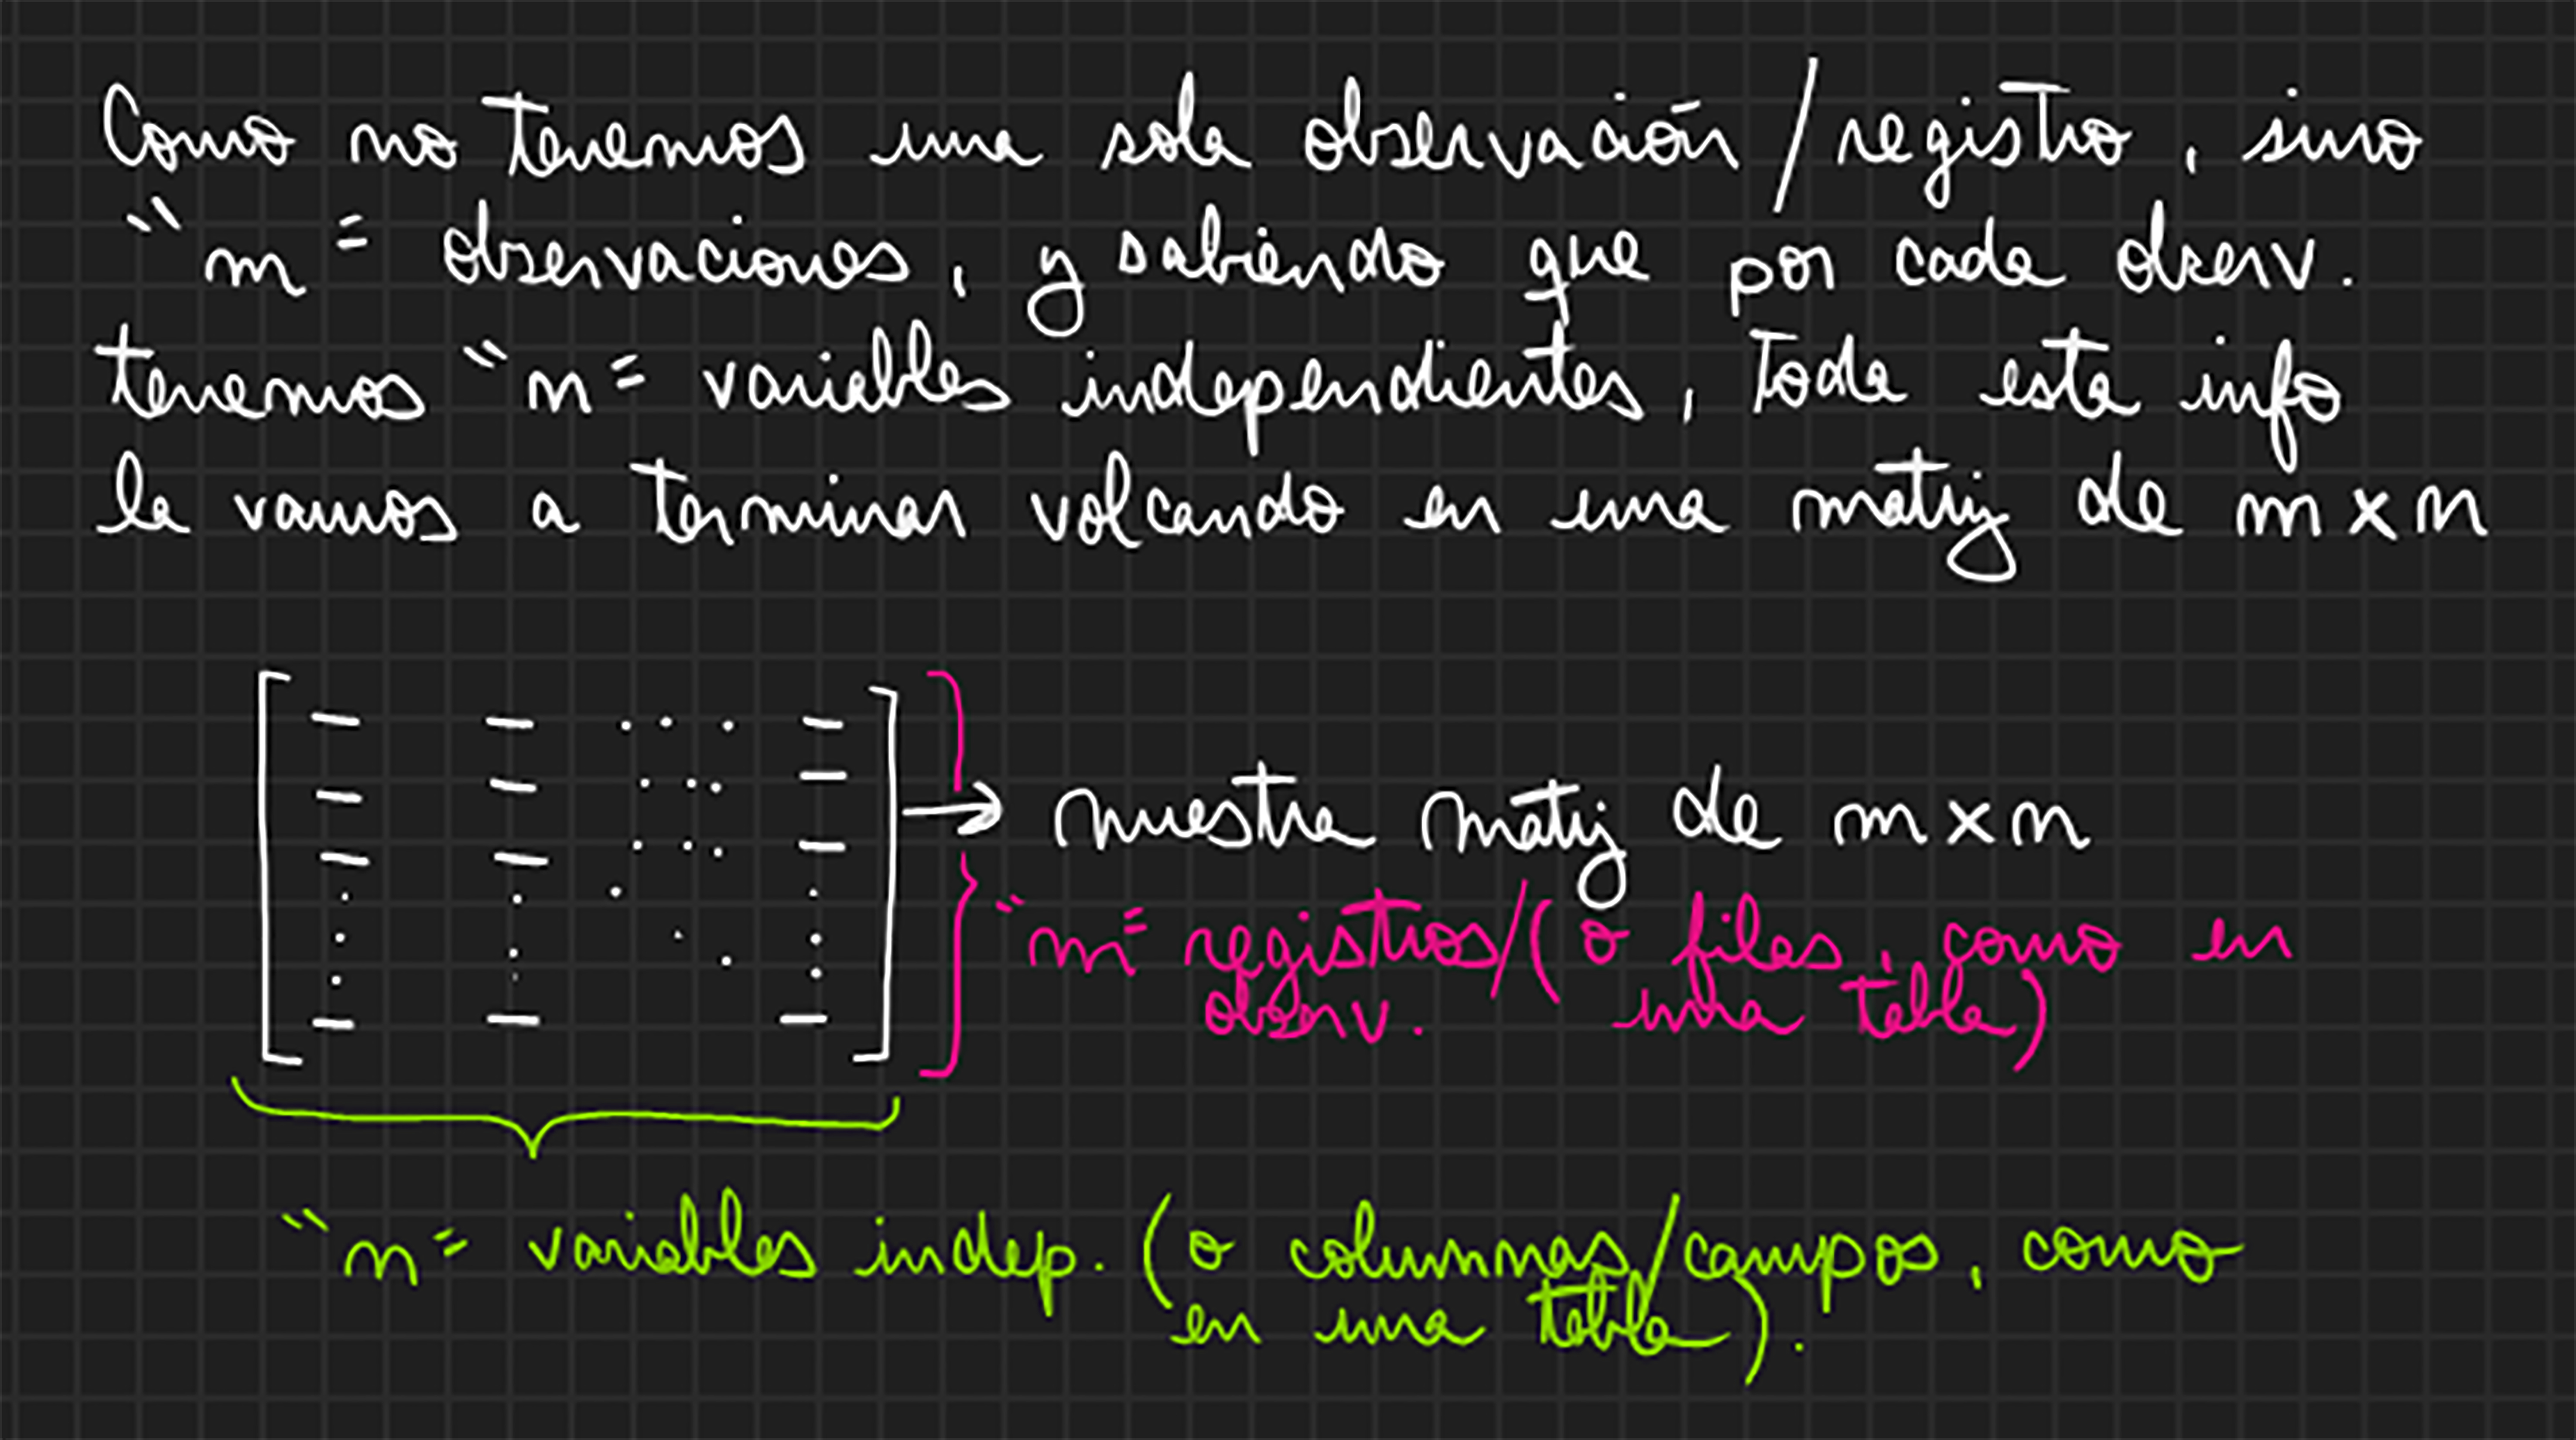 Como no tenemos una sola observación / registro, sino
"m" observaciones, y sabiendo que por cada observ.
tenemos "n" variables independientes, toda esta info
la vamos a terminar volcando en una matriz de m x n
→ nuestra matriz de m x n
"m" registros/ (o filas, como en
observ. una tabla)
"n" variables indep. (o columnas/campos, como
en una tabla).